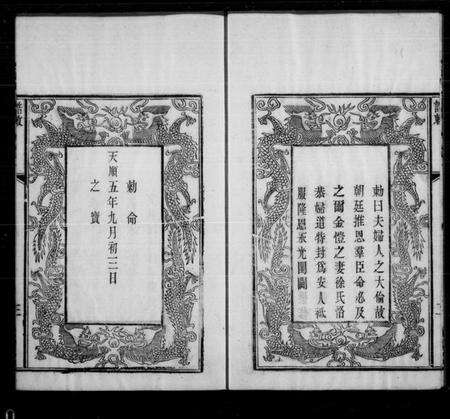 勅曰夫婦人之大倫故
朝廷推恩羣臣命必及
之爾金愷之妻徐氏
恭婦道特封爲安人祇
服隆恩永光閨閫
勅命
天順五年九月初三日
之寶
誥敕